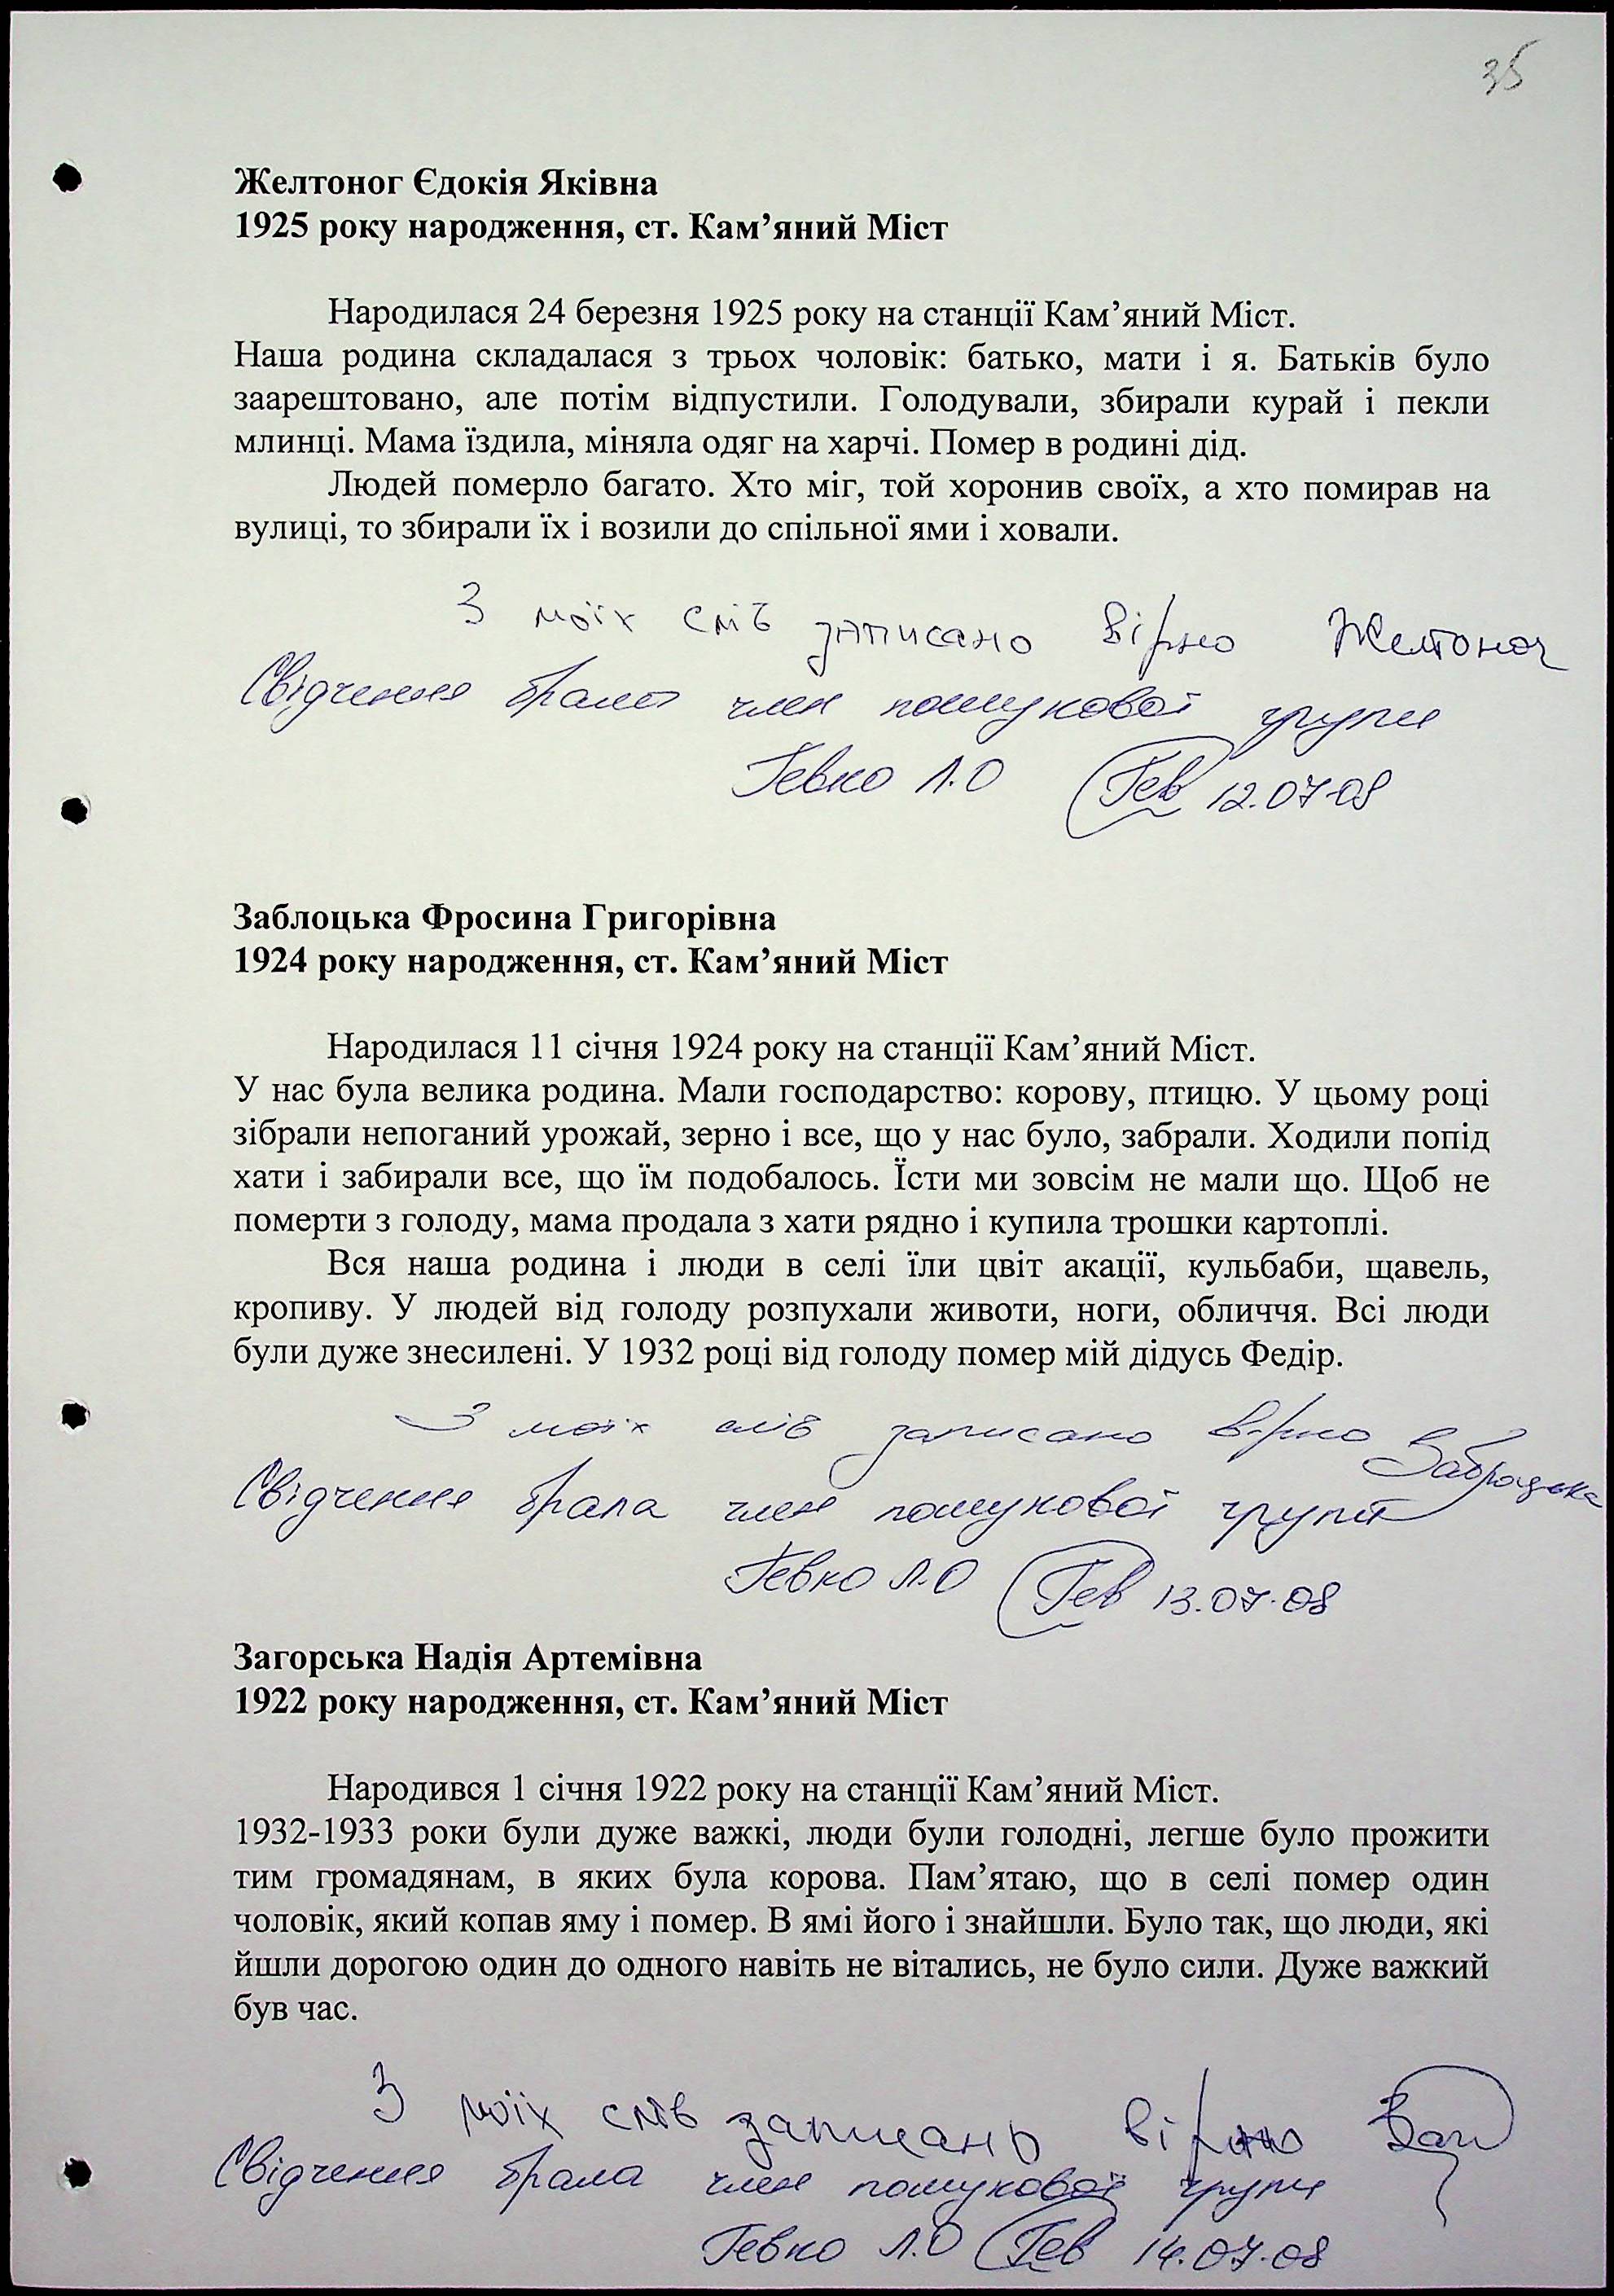 35
Желтоног Єдокія Яківна
1925 року народження, ст. Кам’яний Міст
Народилася 24 березня 1925 року на станції Кам’яний Міст.
Наша родина складалася з трьох чоловік: батько, мати і я. Батьків було
заарештовано, але потім відпустили. Голодували, збирали курай і пекли
млинці. Мама їздила, міняла одяг на харчі. Помер в родині дід.
Людей померло багато. Хто міг, той хоронив своїх, а хто помирав на
вулиці, то збирали їх і возили до спільної ями і ховали.
З моїх слів записано вірно Желтоног
Свідчення брала член пошукової групи
Гевко Л.О Гев 12.07.08
Заблоцька Фросина Григорівна
1924 року народження, ст. Кам’яний Міст
Народилася 11 січня 1924 року на станції Кам’яний Міст.
У нас була велика родина. Мали господарство: корову, птицю. У цьому році
зібрали непоганий урожай, зерно і все, що у нас було, забрали. Ходили попід
хати і забирали все, що їм подобалось. Їсти ми зовсім не мали що. Щоб не
померти з голоду, мама продала з хати рядно і купила трошки картоплі.
Вся наша родина і люди в селі їли цвіт акації, кульбаби, щавель,
кропиву. У людей від голоду розпухали животи, ноги, обличчя. Всі люди
були дуже знесилені. У 1932 році від голоду помер мій дідусь Федір.
З моїх слів записано вірно
Свідчення брала член пошукової групи
Гевко Л.О Гев 13.07.08
Загорська Надія Артемівна
1922 року народження, ст. Кам’яний Міст
Народився 1 січня 1922 року на станції Кам’яний Міст.
1932-1933 роки були дуже важкі, люди були голодні, легше було прожити
тим громадянам, в яких була корова. Пам’ятаю, що в селі помер один
чоловік, який копав яму і помер. В ямі його і знайшли. Було так, що люди, які
йшли дорогою один до одного навіть не вітались, не було сили. Дуже важкий
був час.
З моїх слів записано вірно
Свідчення брала член пошукової групи
Гевко Л.О Гев 14.07.08